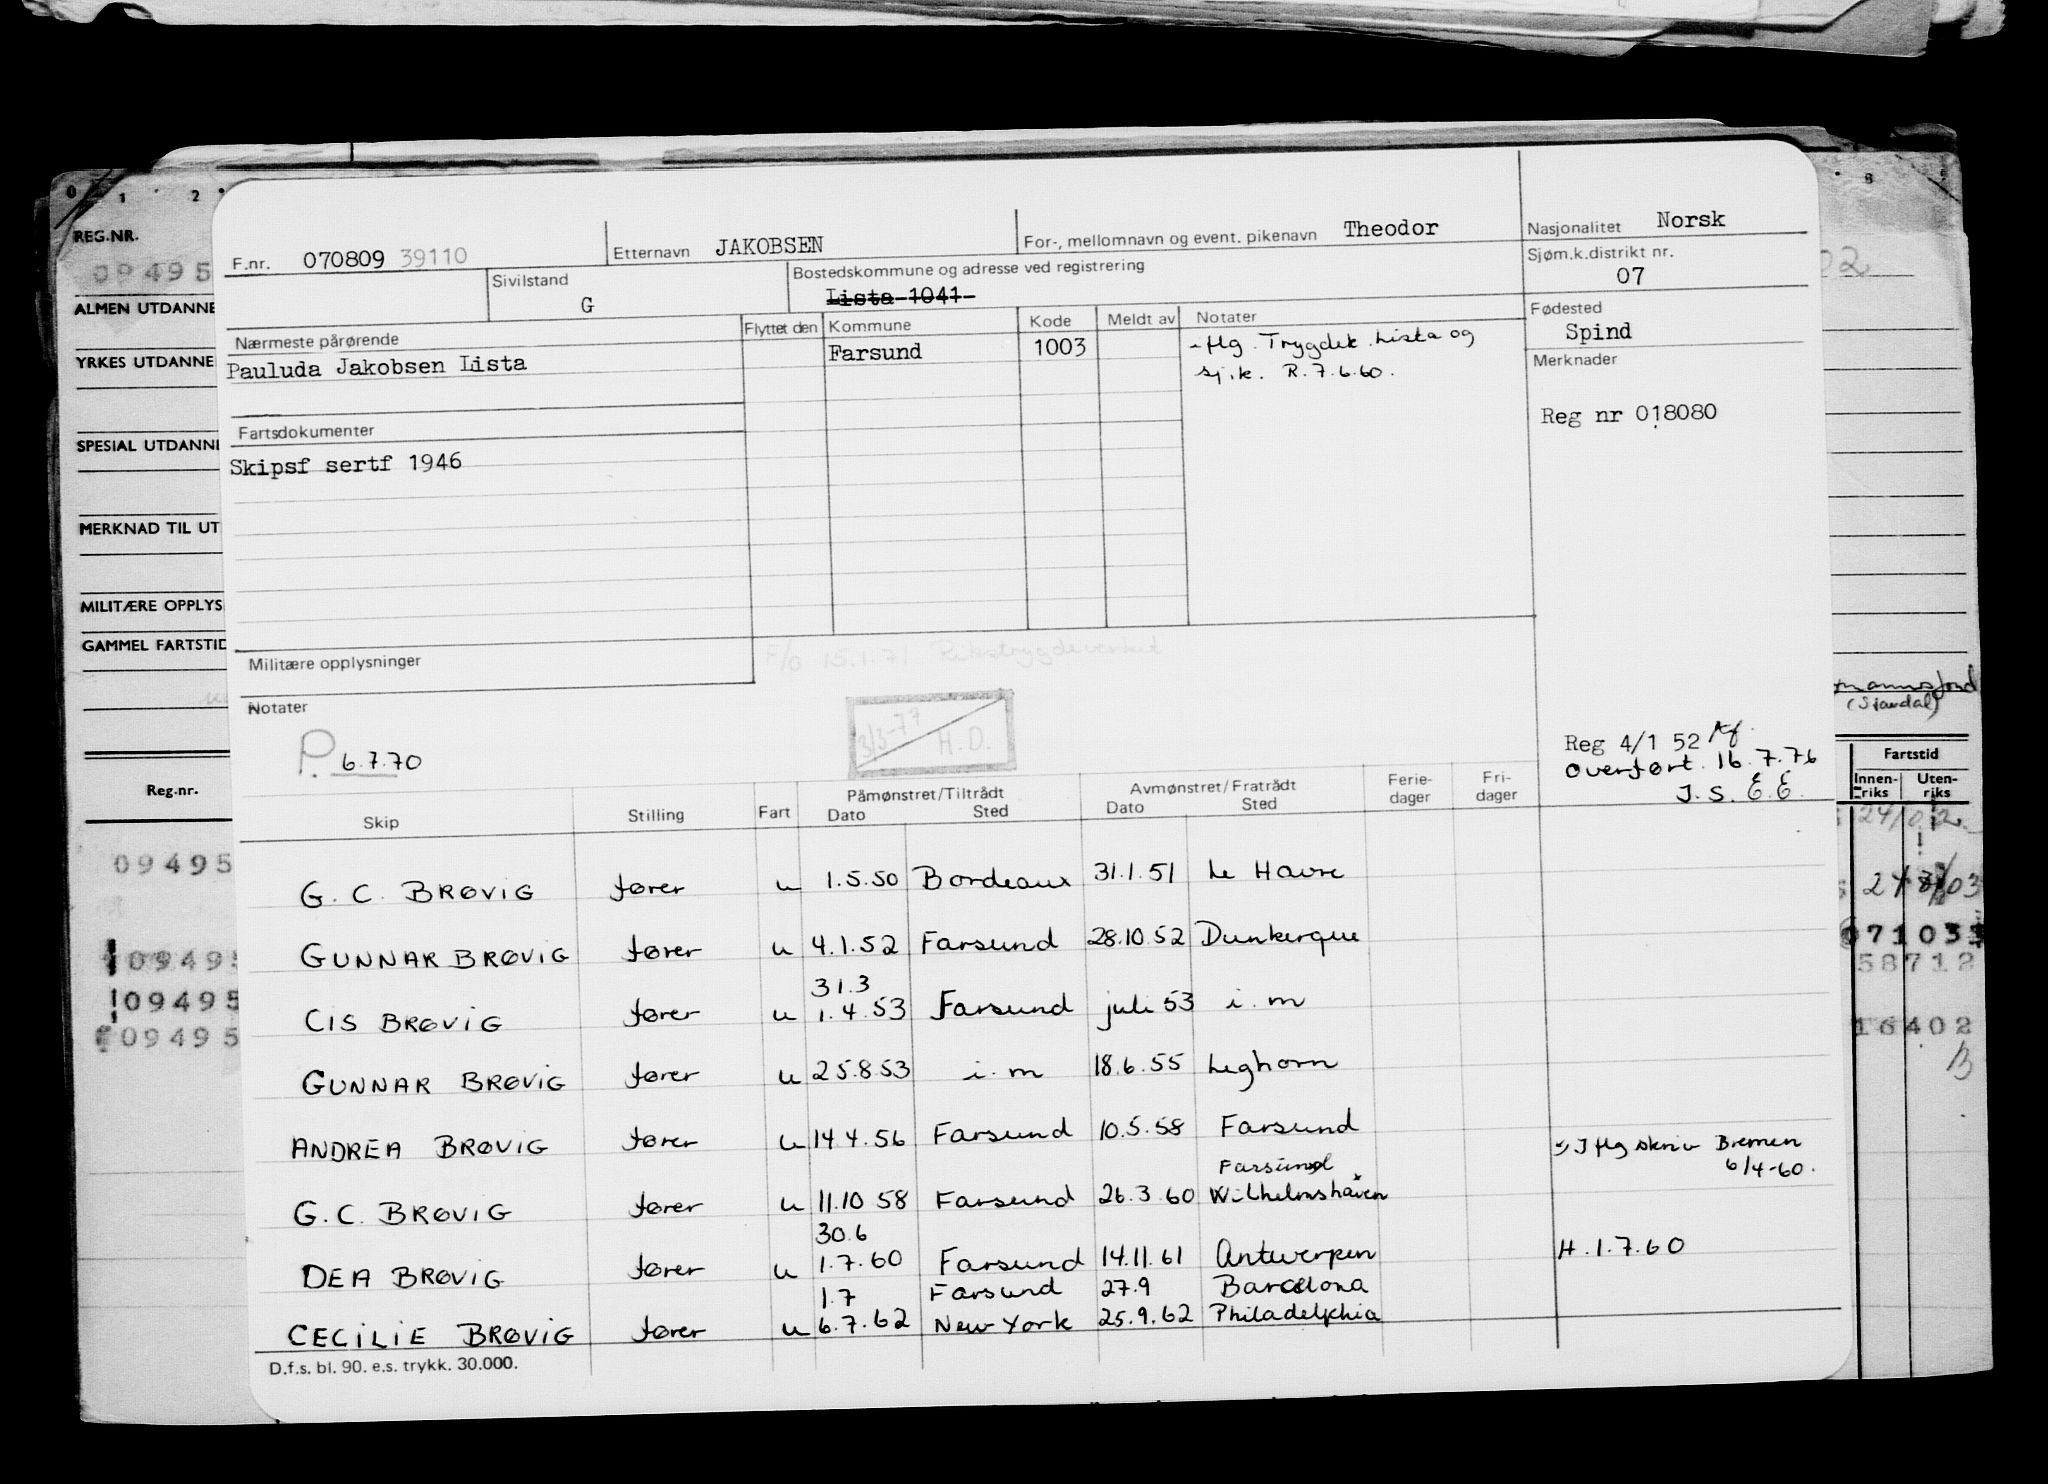 0 1 2 8
REG.NR.
09495
ALMEN UTDANNE
YRKES UTDANNE
SPESIAL UTDANNE
MERKNAD TIL UT
MILITÆRE OPPLYS
GAMMEL FARTSTID
Reg.nr.
09495
09495
09495
09495
F.nr. 070809 39110
Etternavn JAKOBSEN
For-, mellomnavn og event. pikenavn Theodor
Nasjonalitet Norsk
Sivilstand
G
Bostedskommune og adresse ved registrering
Lista 1041
Sjøm.k.distrikt nr.
07
Nærmeste pårørende
Pauluda Jakobsen Lista
Flyttet den Kommune Kode Meldt av Notater
Farsund 1003
- flg. Trygdek. Lista og
sj.k. R. 7.6.60.
Fødested
Spind
Merknader
Reg nr 018080
Fartsdokumenter
Skipsf sertf 1946
Militære opplysninger
F/o 15.1.71 Rikstrygdeverket
Notater
P. 6.7.70
3/3-77 H.D.
Reg 4/1 52
Overført. 16.7.76
J.S. E.E.
Skip Stilling Fart Påmønstret/Tiltrådt Avmønstret/Fratrådt Ferie-dager Fri-dager
Dato Sted Dato Sted
G. C. BRØVIG fører u 1.5.50 Bordeaux 31.1.51 Le Havre
GUNNAR BRØVIG fører u 4.1.52 Farsund 28.10.52 Dunkerque
31.3
CIS BRØVIG fører u 1.4.53 Farsund juli 53 i.m
GUNNAR BRØVIG fører u 25.8.53 i.m 18.6.55 Leghorn
ANDREA BRØVIG fører u 14.4.56 Farsund 10.5.58 Farsund
J flg skriv Bremen
6/4-60.
Farsund
G.C. BRØVIG fører u 11.10 58 Farsund 26.3.60 Wilhelmshaven
30.6
DEA BRØVIG fører u 1.7.60 Farsund 14.11.61 Antwerpen H.1.7.60
1.7 Farsund 27.9 Barcelona
CECILIE BRØVIG fører u 6.7.62 New York 25.9.62 Philadelphia
D.f.s. bl. 90. e.s. trykk. 30.000.
02
(Sjøndal)
Fartstid
Innen-riks Uten-riks
071033
58712
16402
B